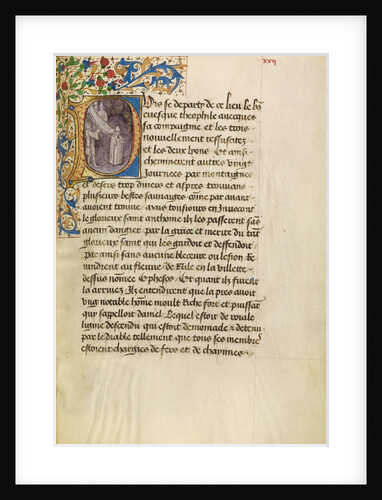 xxvj
Puis se departy de ce lieu le bõ
euesque theophile auecques
sa compaignie et les trois
nouuellement ressuscitez
et les deux lyons Et ainsi
cheminerent autres vingt
Journees par montaignes
et desers trop diuers et aspres trouuans
plusieurs bestes sauuages cõme par auant
auoient trouue mais tousiours en Inuocant
le glorieux saint anthoine ilz les passerent sãs
aucun dangier par la grace et merite du tãt
glorieux saint qui les gardoit et deffendoit
par ainsi sans aucune bleceure ou lesion Ilz
vindrent au fleuue de Nile en la villette
dessus nõmee Ephesos Et quant ilz furẽt
la arriuez Ilz entendirent que la pres auoit
vng notable hõme moult Riche fort et puissãt
quy sappelloit daniel Lequel estoit de roiale
ligne descendu qui estoit demoniacle et detenu
par le diable tellement que tous ses membres
estoient chargies de fers et de chaynnes